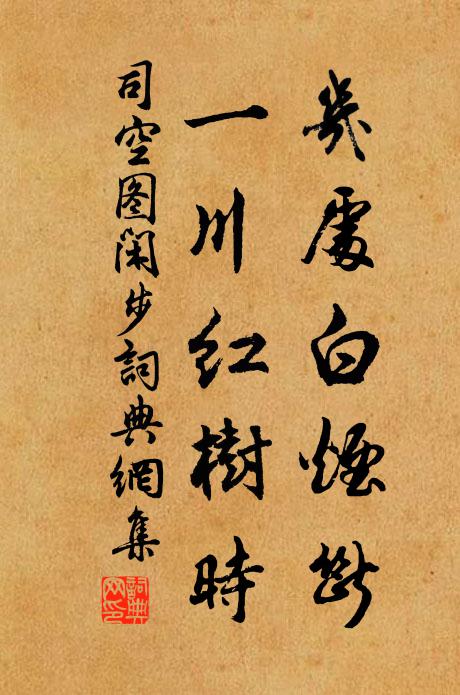 幾處白煙斷
一川紅樹時
司空图閑步詞典網集
詞典
网印